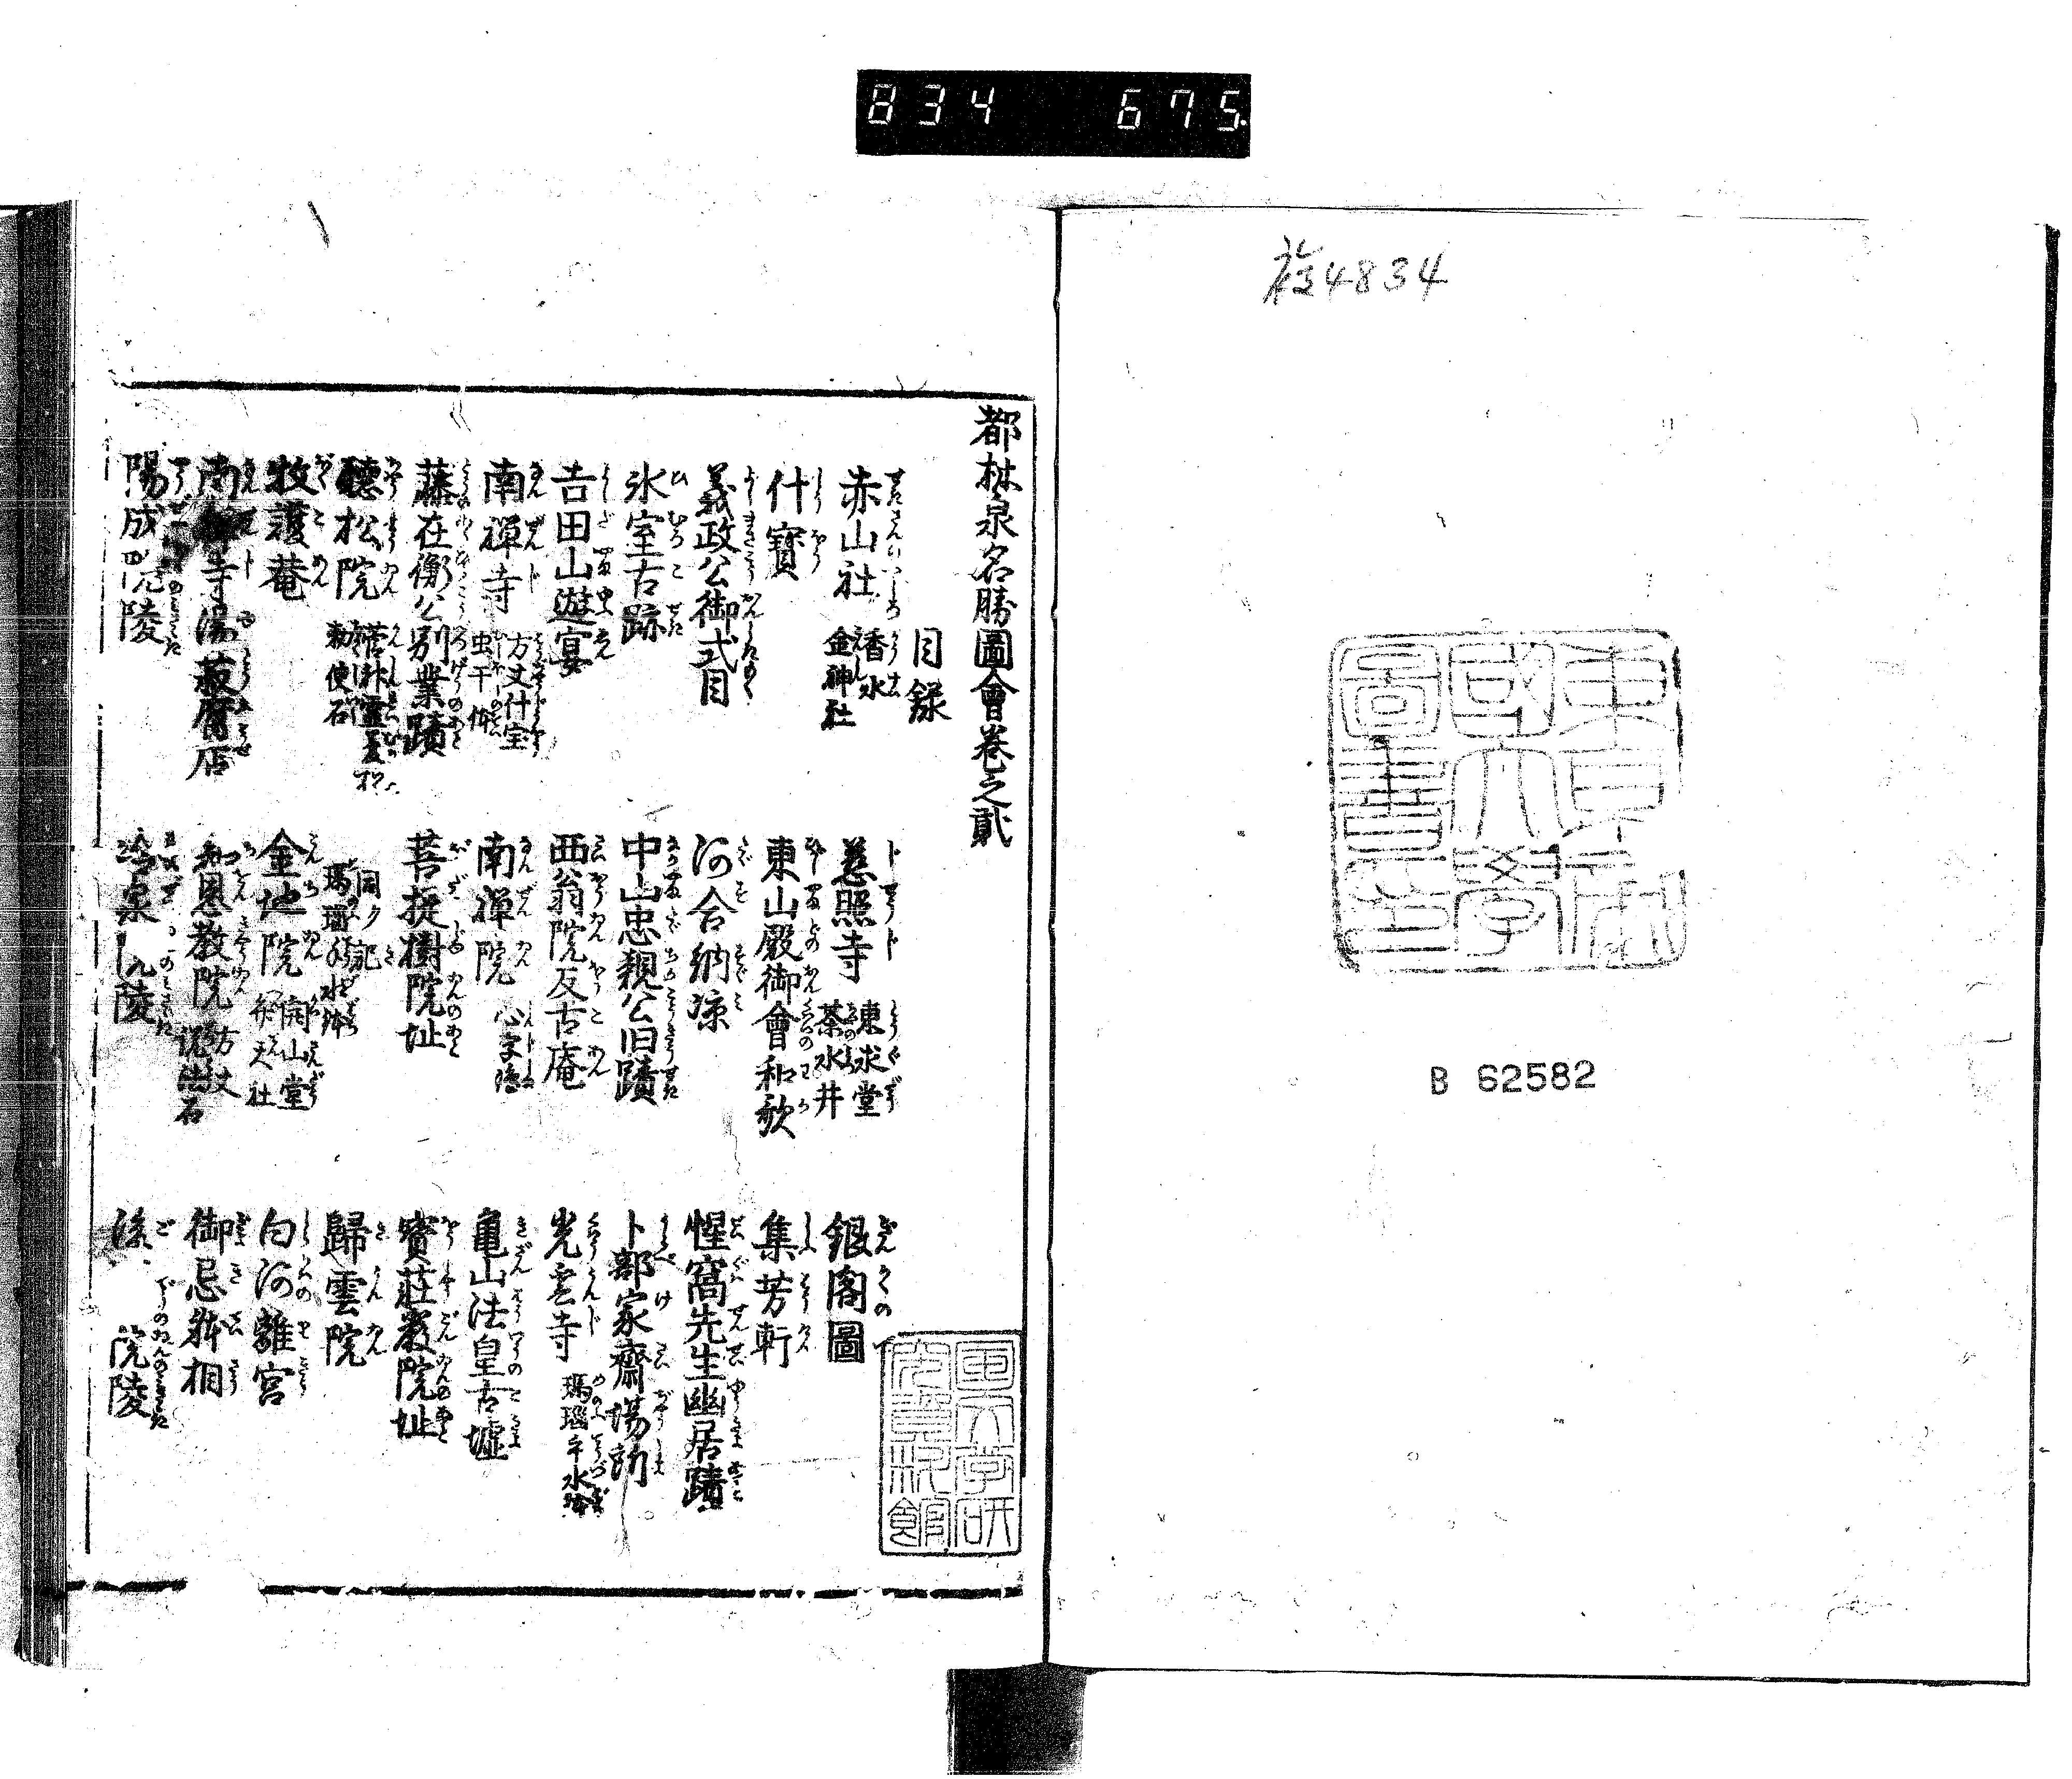 834 675
旅4834
東京帝國大學圖書印
B 62582
都林泉名勝圖會卷之貳
目録
赤山社 香水 金神社
慈照寺 東求堂 茶水井
銀閣圖
什寳
東山殿御會和歌
集芳軒
義政公御式目
河合納涼
惺窩先生幽居蹟
氷室古跡
中山忠親公旧蹟
卜部家齋場所
吉田山遊宴
西翁院反古庵
光雲寺 瑪瑙手水鉢
南禅寺 方丈什宝 虫干
南禅院 心字
亀山法皇古墟
藤在衡公別業蹟
菩提樹院址
寳荘嚴院址
聴松院 勅使石
同夕記 瑪瑙手水鉢
歸雲院
牧護菴
金地院 開山堂 弁天社
白河離宮
南禅寺湯豆腐店
知恩教院 方丈 説法石
御忌角力
陽成院陵
冷泉院陵
後 院陵